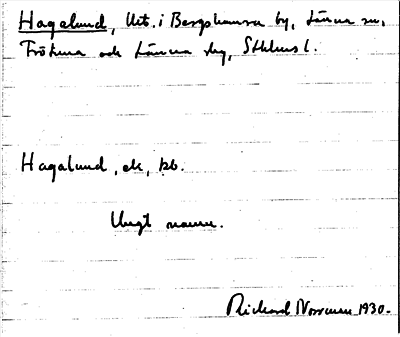 Hagalund, lht. i Bergshamra by, Länna sn,
Frötuna och Länna skg, Sthlms l.
Hagalund, ek, kb.
Ungt namn.
Rickard Norrman 1930.